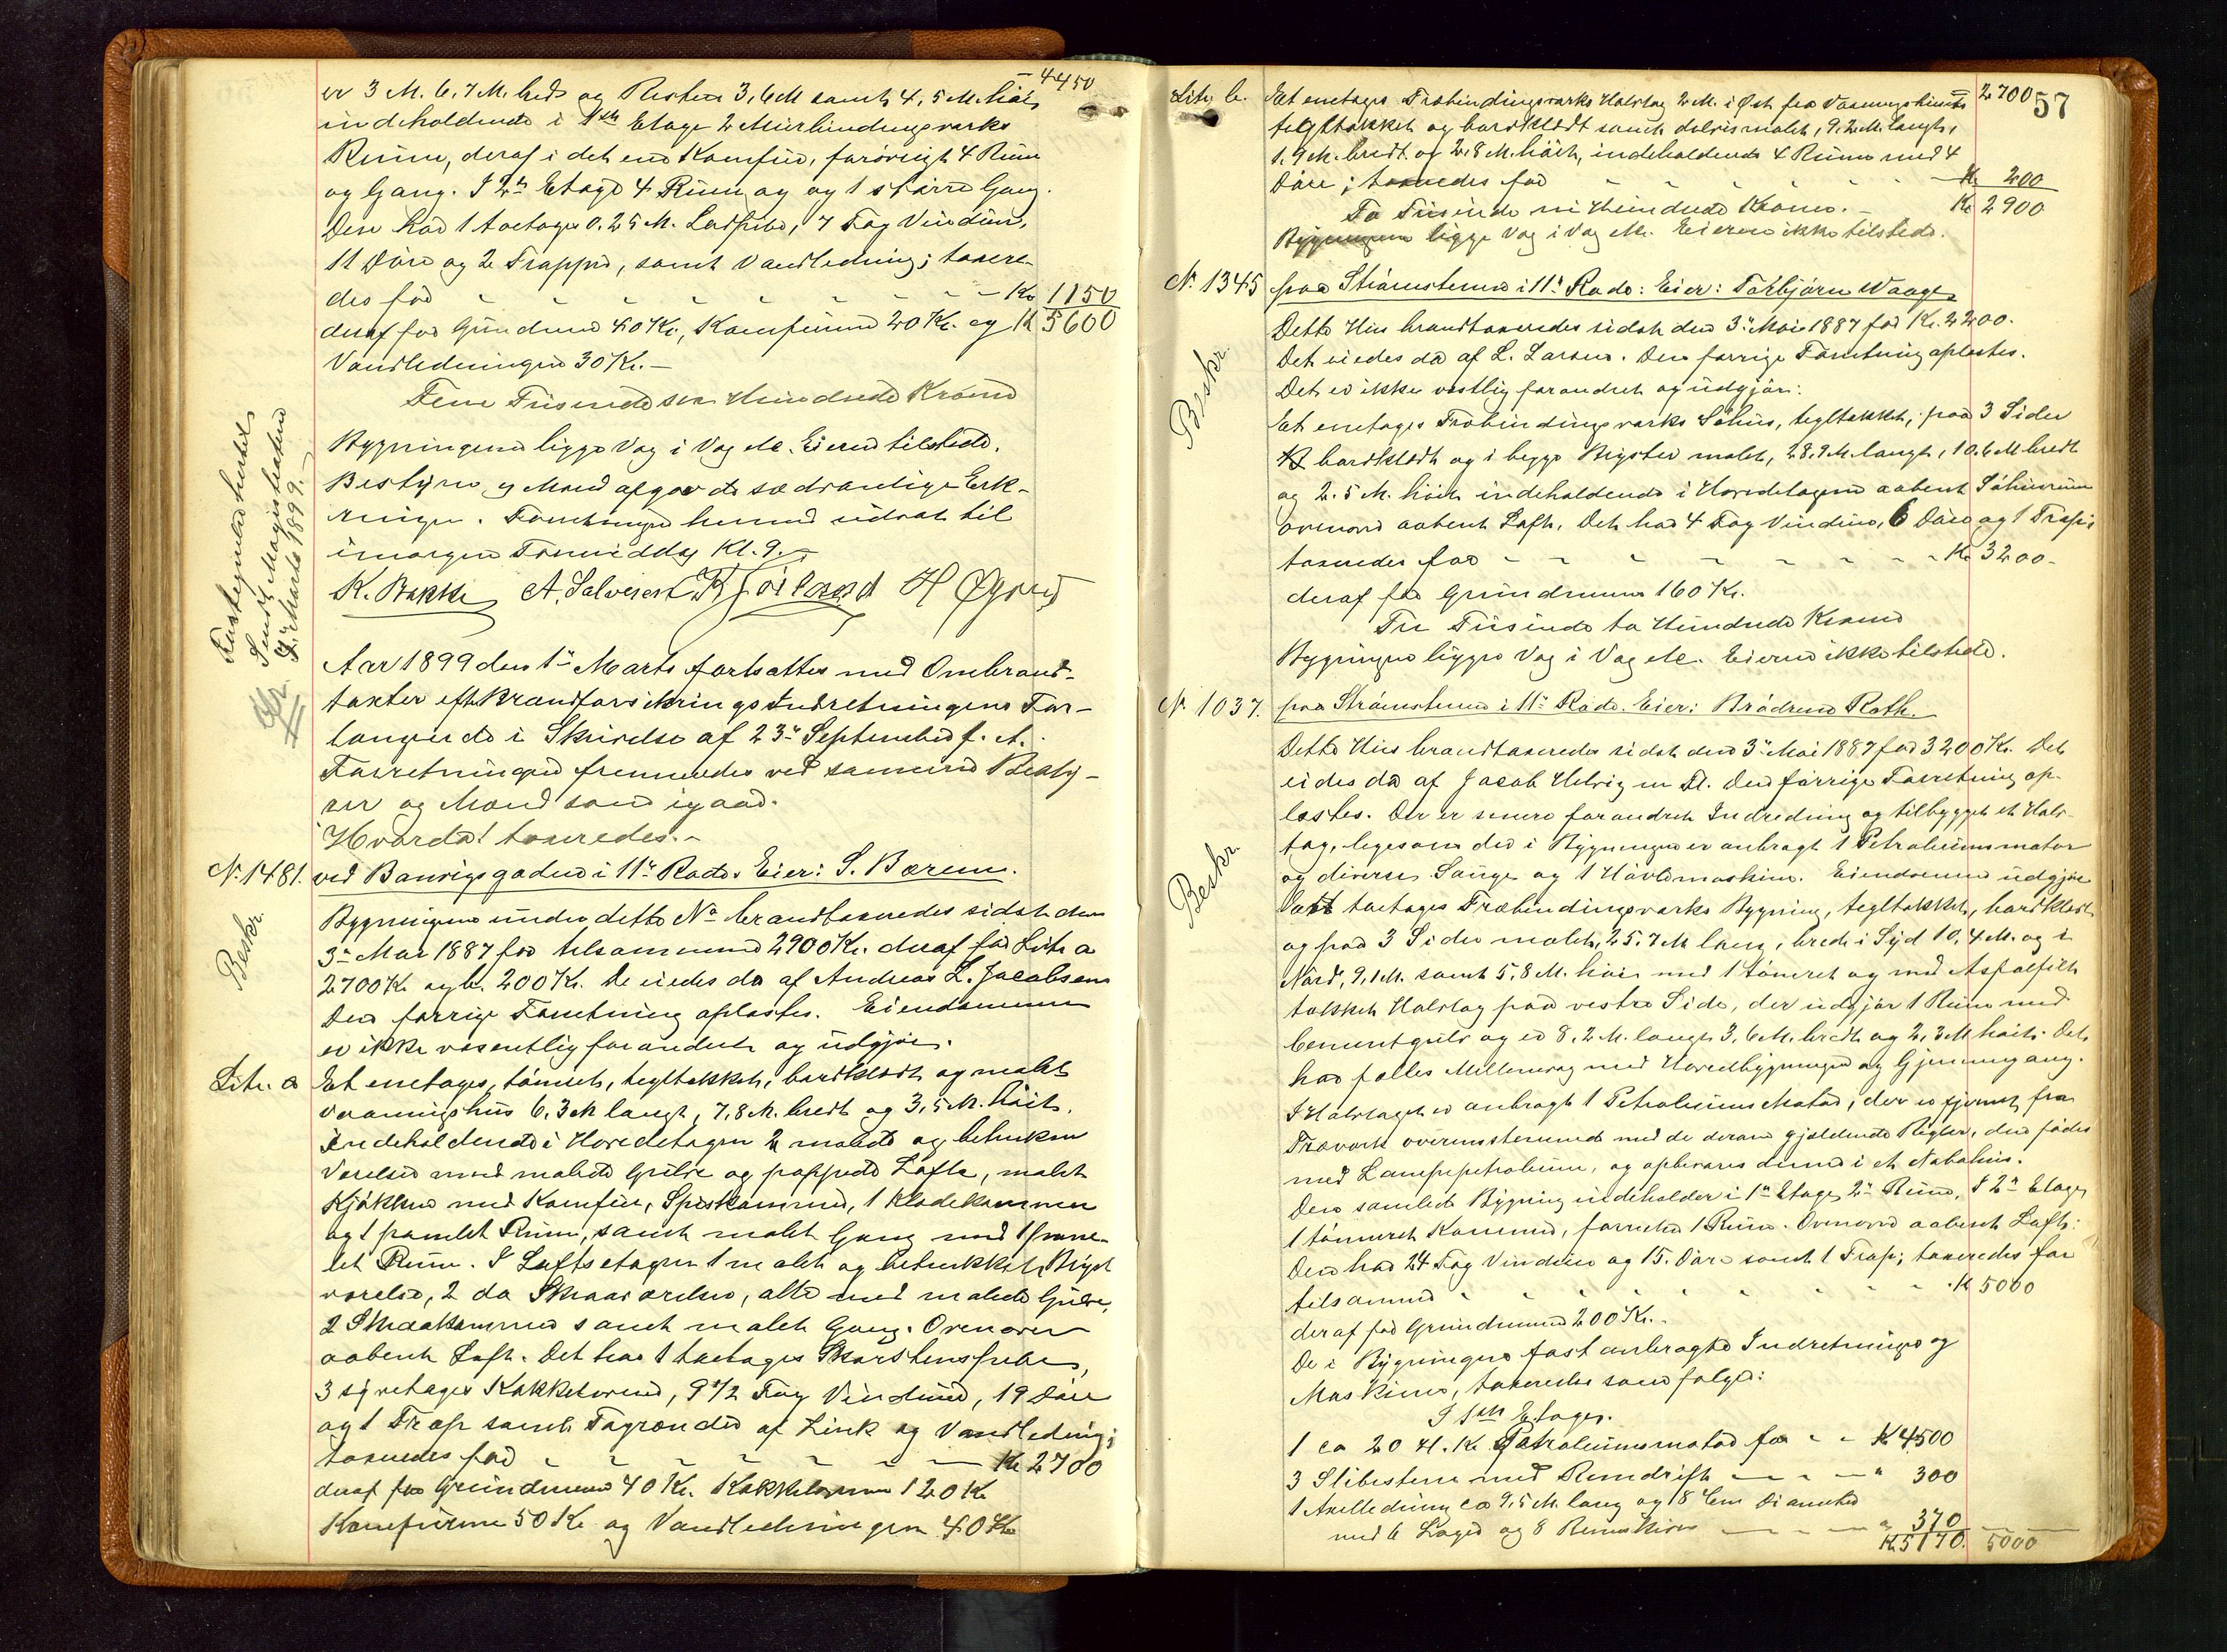 4450
er 3 M. 6,7 M. bred og Resten 3,6 M samt 4,5 M. høi,
indeholdende i 1ste Etage 2 Murbindingsværks
Rum, deraf i det ene Komfur, forøvrigt 4 Rum
og Gang. I 2den Etage 4 Rum og 1 større Gang.
Den har 1 toetages 0.25 M. Ladpibe, 7 Fag Vinduer,
11 Døre og 2 Trapper, samt Vandledning; taxere-
des for - - - - Kr. 1150
deraf for Grunden 40 Kr., Komfuren 20 Kr. og K 5600
Vandledningen 30 Kr. —
Fem Tusinde sex Hundrede Kroner
Bygningerne ligge Væg i Væg etc. Eieren tilstede.
Bestyrer og Mænd afgav de sædvanlige Erk-
ringer. Forretningen herved udsat til
imorgen Formiddag Kl. 9. —
K. Bakke A. Salvesen H Øgreid
Fuldtegnet hertil
Sendt Magistraten
2 Marts 1899.
Aar 1899 den 1ste Marts fortsattes med Ombrand-
taxter efter Brandforsikringsindretningens For-
langende i Skrivelse af 23de September f. A.
Forretningen fremmedes ved samme Besty-
rer og Mænd som igaar.
Hvorda! taxeredes. —
N. 1481. ved Banevigsgaden i 11te Rode. Eier: S. Bærem.
Beskr.
Bygningerne under dette No brandtaxeredes sidst den
3die Mai 1887 for tilsammen 2900 Kr. deraf for Litr a
2700 Kr. og b. 200 Kr. De eiedes da af Andreas L. Jacobsen
Den forrige Forretning oplæstes. Eiendommen
er ikke væsentlig forandret og udgjør.
Litr. a Et enetages, tømret, tegltækket, bordklædt og malet
Vaaningshus 6,3 M langt, 7,8 M. bredt og 3,5 M. høit,
indeholdende i Hovedetagen 2 malede og betrukne
Værelser med malede Gulve og pappede Lofte, malet
Kjøkken med Komfur, Spiskammer, 1 Klædekammer
og 1 panelet Rum, samt malet Gang med 1 pane-
let Rum. I Loftsetagen 1 malet og betrukket Bryst
værelse, 2 do Skraaværelser, alle med malede Gulve,
2 Skraakammer samt malet Gang. Ovenover
aabent Loft. Det har 1 toetages Skorstenspibe,
3 syvetages Kakkelovne, 9 1/2 Fag Vinduer, 19 Døre
og 1 Trap samt Tagrender af Zink og Vandledning;
taxeredes for - - - - Kr 2700
deraf for Grunden 40 Kr. Kakkelovnene 120 Kr
Komfurene 50 Kr og Vandledningen 40 Kr
57
2700
Litr b. Et enetages Træbindingsværks Halvtag 2 M. i Øst fra Vaaningshuset
tegltækket og bordklædt samt delvis malet, 9,2 M. langt,
1,9 M. bredt og 2,8 M. høit, indeholdende 4 Rum med 4
Døre; taxeredes for - - - - K. 200
To Tusinde ni Hundrede Kroner. — Kr 2900
Bygningerne ligge Væg i Væg etc. Eieren ikke tilstede.
N. 1345 paa Strømstenen i 11te Rode: Eier: Torbjørn Waage
Beskr.
Dette Hus brandtaxeredes sidst den 3die Mai 1887 for Kr. 2200.
Det eiedes da af L. Larsen. Den forrige Forretning oplæstes.
Det er ikke væstlig forandret og udgjør:
Et enetages Træbindingsværks Søhus, tegltækket, paa 3 Sider
bordklædt og i begge Bryster malet, 28,9 M. langt, 10.6 M bredt
og 2.5 M. høit indeholdende i Hovedetagen aabent Søhusrum
ovenover aabent Loft. Det har 4 Fag Vinduer, 6 Døre og 1 Trap;
taxeredes for - - - - Kr. 3200.-
deraf for Grundmuren 160 Kr.
Tre Tusinde to Hundrede Kroner
Bygningen ligger Væg i Væg etc. Eieren ikke tilstede.
N. 1037. paa Strømstenen i 11te Rode. Eier: Brødrene Roth.
Beskr.
Dette Hus brandtaxeredes sidst den 3die Mai 1887 for 3200 Kr. Det
eiedes da af Jacob Helvig m Fl. Den forrige Forretning op-
læstes. Der er senere forandret Indredning og tilbygget et Halv-
tag, ligesom der i Bygningen er anbragt 1 Petroleumsmotor
og diverse Sauge og 1 Høvlemaskine. Eiendommen udgjør
toetages Træbindingsværks Bygning, tegltækket, bordklædt
og paa 3 Sider malet, 25,7 M lang, bred i Syd 10,4 M. og i
Nord, 9,1 M. samt 5,8 M. høi med 1 tømret og med Asfaltfilt
tækket Halvtag paa vestre Side, der udgjør 1 Rum med
Cementgulv og er 8,2 M. langt 3,6 M. bredt og 2,3 M høit. Det
har fælles Mellemvæg med Hovedbygningen og Gjennemgang.
I Halvtaget er anbragt 1 Petroleums Motor, der er fjernet fra
Træværk overensstemmende med de derom gjældende Regler, den fødes
med Lampepetroleum, og opbevares denne i et Nabohus.
Den samlede Bygning indeholder i 1ste Etage 2de Rum, I 2den Etage
1 tømmeret Kammer, forresten 1 Rum. Ovenover aabent Loft.
Den har 24 Fag Vinduer og 15. Døre samt 1 Trap; taxeredes for
tilsammen - - - - K 5000
deraf for Grundmuren 200 Kr. -
De i Bygningen fast anbragte Indretninger og
Maskiner, taxeredes som følger:
I 1ste Etage.
1 ca 20 H. K. Petroleumsmotor for - - K 4500
3 Slibestene med Remdrift — - — " 300
1 Axelledning ca 9,5 M. lang og 18 Cm Diameter
med 6 Lager og 8 Remskiver — — " 370
K. 5170. 5000